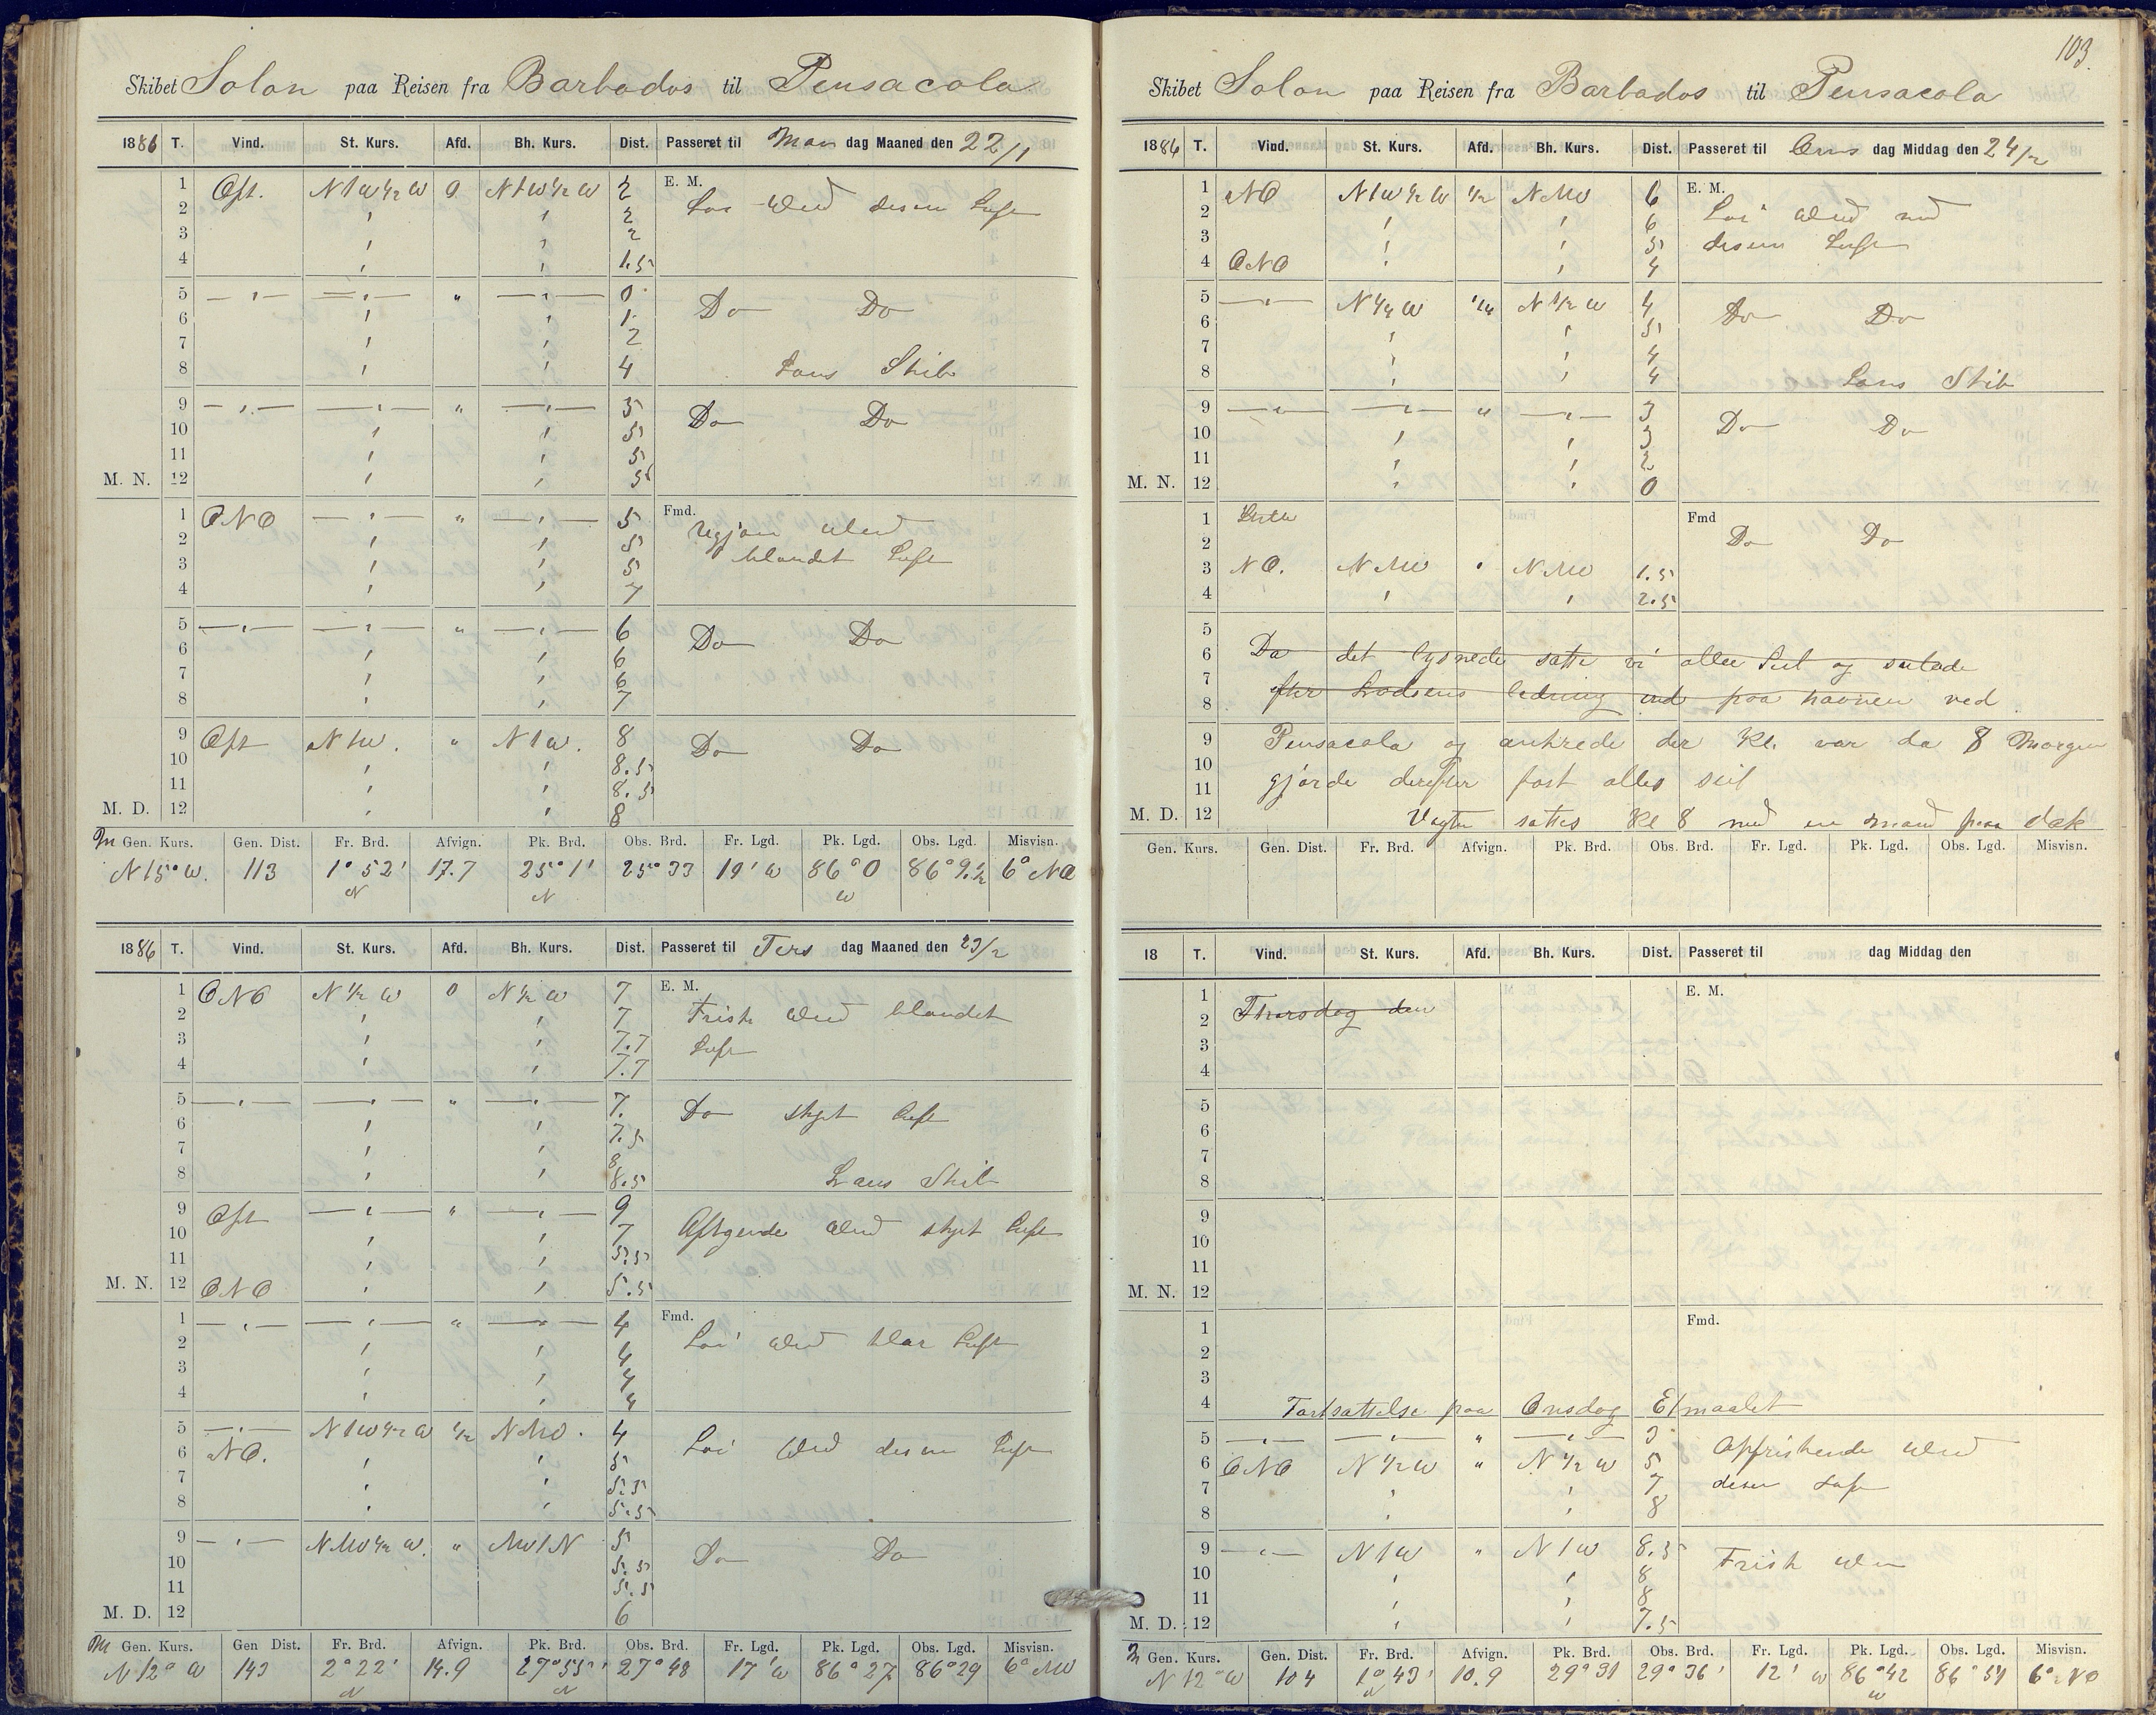 103.
Skibet Solon paa Reisen fra Barbados til Pensacola
1886 T. Vind. St. Kurs. Afd. Bh. Kurs. Dist. Passeret til Man dag Maaned den 22/1
E. M.
1 Ost. N1W½W 0 N1W½W 2 Loi Wind disen Luft
2 2
3 2
4 1.5
5 0 Do Do
6 1
7 2
8 4 Lans Skib
9 5 Do Do
10 5
11 5
M. N. 12 5
Fmd.
1 ONO 5 Ugjan Wind
2 5 blandet Luft
3 5
4 7
5 6 Do Do
6 6
7 6
8 7
9 Ost N1W. N1W. 8 Do Do
10 8.5
11 8.5
M. D. 12 8
M Gen. Kurs. Gen. Dist. Fr. Brd. Afvign. Pk. Brd. Obs. Brd. Fr. Lgd. Pk. Lgd. Obs. Lgd. Misvisn.
N 15° W. 113 1° 52' N 17.7 25° 1' N 25° 33 19' W 86° 0 W 86° 9.½ 6° NO
1886 T. Vind. St. Kurs. Afd. Bh. Kurs. Dist. Passeret til Tirs dag Maaned den 23/2
E. M.
1 ONO N½W 0 N½W 7 Frisk Wind blandet
2 7
3 7.7 Luft
4 7.7
5 7. Do skyet Luft
6 7.5
7 8
8 8.5 Lans Skib
9 Ost 9 Aftgende Wind skyet Luft
10 7
11 5.5
M. N. 12 ONO 5.5
Fmd.
1 4 Loi Wind klar Luft
2 4
3 4
4 4
5 N1W½W ½ NNW. 4
6 NO. 5 Loi Wind disen Luft
7 5.5
8 5.5
9 NNW½W. NW1N 5 Do Do
10 5.5
11 5.5
M. D. 12 6
M Gen. Kurs. Gen Dist. Fr. Brd. Afvign. Pk. Brd. Obs. Brd. Fr. Lgd. Pk. Lgd. Obs. Lgd. Misvisn.
N 12° W 143 2° 22' N 14.9 27° 55' N 27° 48 17' W 86° 27 86° 29 6° NO
Skibet Solon paa Reisen fra Barbados til Pensacola
1886 T. Vind. St. Kurs. Afd. Bh. Kurs. Dist. Passeret til Ons dag Middag den 24/2
E. M.
1 NO N1W½W ½ NNW 6 Loi Wind med
2 6
3 5 disen Luft
4 ONO 4
5 N¼W ¼ N½W 4 Do Do
6 5
7 4
8 4 Lans Skib
9 3 Do Do
10 3
11 2
M. N. 12 0
Fmd
1 Stille Do Do
2
3 NO. NNW NNW 1.5
4 2.5
5
6 Da det lysnede satte vi alle Seil og seilade
7
8 efter Lodsens ledning ind paa havnen ved
9 Pensacola og ankrede der Kl. var da 8 Morgen
10
11 gjorde derefter fast alles seil
M. D. 12 Vagten sattes Kl 8 med en mand paa dæk
Gen. Kurs. Gen. Dist. Fr. Brd. Afvign. Pk. Brd. Obs. Brd. Fr. Lgd. Pk. Lgd. Obs. Lgd. Misvisn.
18 T. Vind. St. Kurs. Afd. Bh. Kurs. Dist. Passeret til dag Middag den
E. M.
1
2 Thorsdag den
3
4
5
6
7
8
9
10
11
M. N. 12
Fmd.
1
2
3
4 Fortsattelse paa Onsdag Etmaalet
5 3 Opfriskende Wind
6 ONO N½W N½W 5
7 7 disen Luft
8 8
9 N1W N1W 8.5 Frisk
10 8
11 8
M. D. 12 7.5
M Gen. Kurs. Gen. Dist. Fr. Brd. Afvign. Pk. Brd. Obs. Brd. Fr. Lgd. Pk. Lgd. Obs. Lgd. Misvisn.
N 12° W 104 1° 43' N 10.9 29° 31 29° 36' 12' W 86° 42 W 86° 51 6° NO